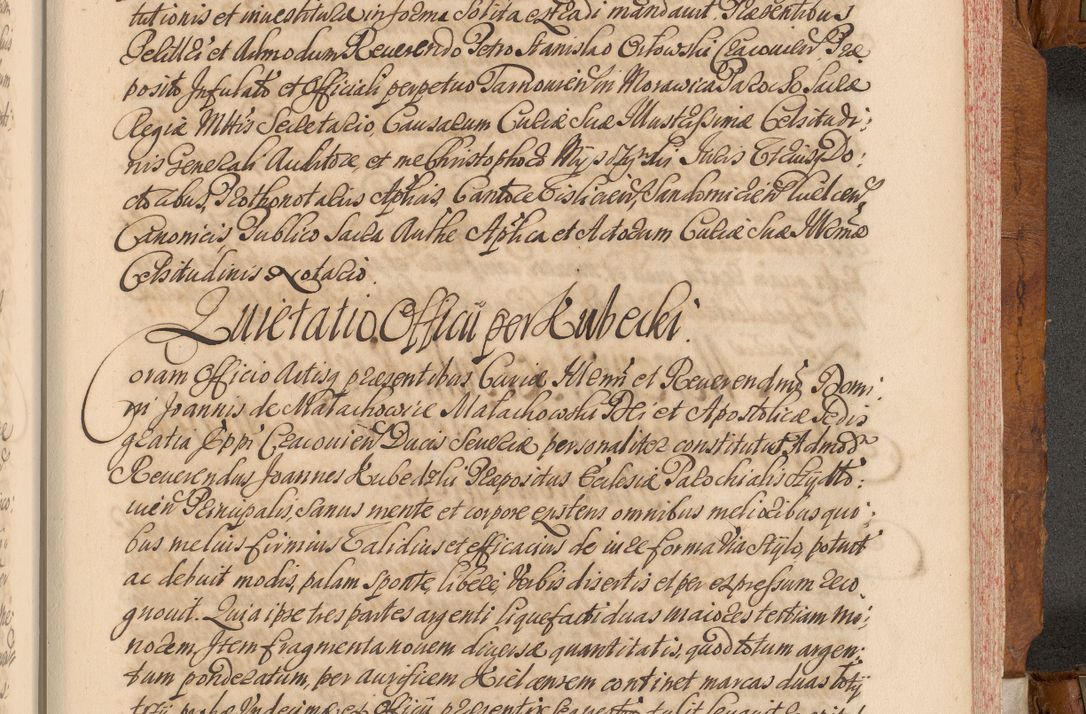 tutionis et investitura in forma solita extradi mandavit Præsentibus
Pelttr̃ et Admodum Reverendo Petro Stanislao Orłowski Cracovien̄ Præ
posito Infulato et Officiali perpetuo Tarnovien̄ in Morawica Parocho Sacræ
Regiæ Mttis Secretario, Causarum Curiæ Suæ Illustrissimæ Celsitudi:
nis Generali Auditore, et me Christophoro Juris Utriusq Do:
ctoribus, Prothonotariis Aplicis, Cantore Vislicien̄, Sandomirien̄ Kielcen̄
Canonicis, Publico Sacra Authe Aplica et Actorum Curiæ Suæ Illtmæ
Celsitudinis Notario.
Quietatio Officii per Kubecki.
Coram Officio Actisq præsentibus Curiæ Illtmi et Reverendmi Domi:
ni Joannis de Małachowice Małachowski Dei et Apostolicæ Sedis
gratia Eppi Cracovien̄ Ducis Severiæ personaliter constitutus Admod̄
Reverendus Joannes Kubecki Præpositus Ecclesiæ Parochialis
vien̄ Principalis, sanus mente et corpore existens omnibus melioribus quo:
bus melius firmius validius et efficacius de iure forma via stylo, potuit
ac debuit modis, palam sponte, libere, verbis disertis et per expressum reco
gnovit. Quia ipse tres partes argenti liquefacti duas maiores tertiam mi:
norem. Item fragmenta novem diversæ quantitatis, quod totum argen:
tum ponderatum, per aurificem Kielcensem continet marcas duas